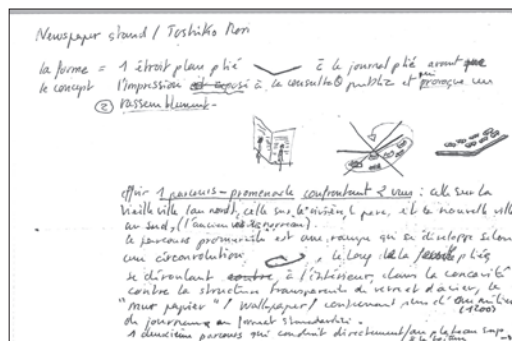 Newspaper stand / Toshiko Mori
la forme = 1 étroit plan plié le journal plié avant que
le concept l'impression exposé à la consultat° publiq et qui provoque un
② rassemblement -
offrir 1 parcours-promenade confrontant 2 vues : celle sur la
vieille ville (au nord), celle sur la rivière, le parc, et la nouvelle ville
au sud, (l'ancien
le parcours promenade est une rampe qui se développe selon
une circonvolution , le long de la pliée
se déroulant contre à l'intérieur, dans la concavité
contre la structure transparente de verre et d'acier, le
"mur papier" / wallpaper / contenant plus d'un millier
(1200)
de journaux au format standardisé.
1 deuxième parcours qui conduit directement au plateau sup.